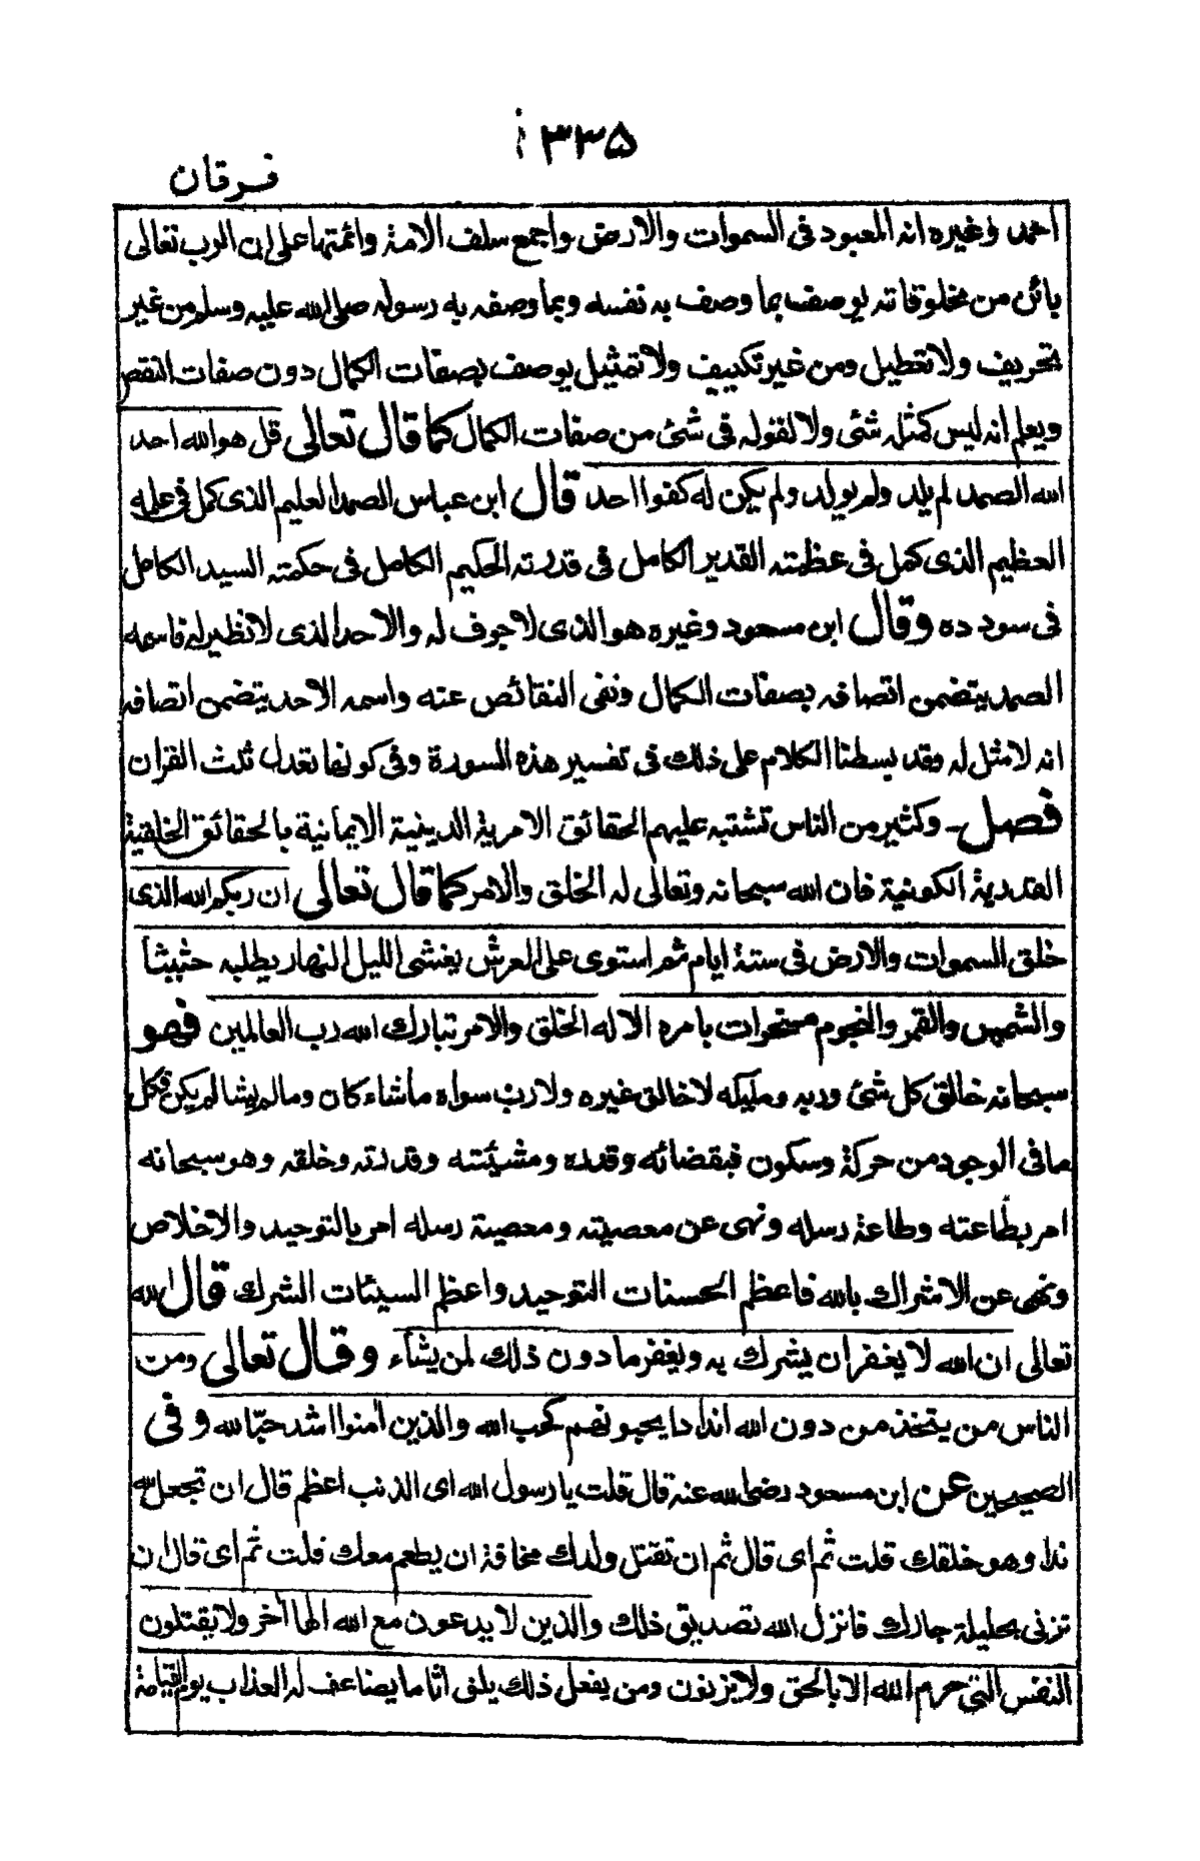 ۳۳۵
فرقان
احمد وغيره انه المعبود فى السموات والارض واجمع سلف الامة وائمتها على ان الرب تعالى
بائن من مخلوقاته يوصف بما وصف به نفسه وبما وصفه به رسوله صلى الله عليه وسلم من غير
تحريف ولا تعطيل ومن غير تكييف ولا تمثيل يوصف بصفات الكمال دون صفات النقص
ويعلم انه ليس كمثله شئ ولا لفوله فى شئ من صفات الكمال كما قال تعالى قل هو الله احد
الله الصمد لم يلد ولم يولد ولم يكن له كفوا احد قال ابن عباس الصمد العليم الذى كمل فى علمه
العظيم الذى كمل فى عظمته القدير الكامل فى قدرته الحكيم الكامل فى حكمته السيد الكامل
فى سودده وقال ابن مسعود وغيره هو الذى لا جوف له والاحد الذى لا نظير له فاسمه
الصمد يتضمن اتصافه بصفات الكمال ونفى النقائص عنه واسمه الاحد يتضمن اتصافه
انه لا مثل له وقد بسطنا الكلام على ذلك فى تفسير هذه السورة وفى كونها تعدل ثلث القران
فصل ـ وكثير من الناس تشتبه عليهم الحقائق الامرية الدينية الايمانية بالحقائق الخلقية
القدرية الكونية فان الله سبحانه وتعالى له الخلق والامر كما قال تعالى ان ربكم الله الذى
خلق السموات والارض فى ستة ايام ثم استوى على العرش يغشى الليل النهار يطلبه حثيثا
والشمس والقمر والنجوم مسخرات بامره الا له الخلق والامر تبارك الله رب العالمين فهو
سبحانه خالق كل شئ وربه ومليكه لا خالق غيره ولا رب سواه ماشاء كان وما لم يشا لم يكن فكل
ما فى الوجود من حركة وسكون فبقضائه وقدره ومشيئته وقدرته وخلقه وهو سبحانه
امر بطاعته وطاعة رسله ونهى عن معصيته ومعصية رسله امر بالتوحيد والاخلاص
ونهى عن الاشراك بالله فاعظم الحسنات التوحيد واعظم السيئات الشرك قال الله
تعالى ان الله لا يغفر ان يشرك به ويغفر ما دون ذلك لمن يشاء وقال تعالى ومن
الناس من يتخذ من دون الله اندادا يحبونهم كحب الله والذين امنوا اشد حبّا لله وفى
الصحيحين عن ابن مسعود رضى الله عنه قال قلت يا رسول الله اى الذنب اعظم قال ان تجعل لله
ندا وهو خلقك قلت ثم اى قال ثم ان تقتل ولدك مخافة ان يطعم معك قلت ثم اى قال ان
تزنى بحليلة جارك فانزل الله تصديق ذلك والذين لا يدعون مع الله الها اخر ولا يقتلون
النفس التى حرم الله الا بالحق ولا يزنون ومن يفعل ذلك يلق اثاما يضاعف له العذاب يوم القيامة